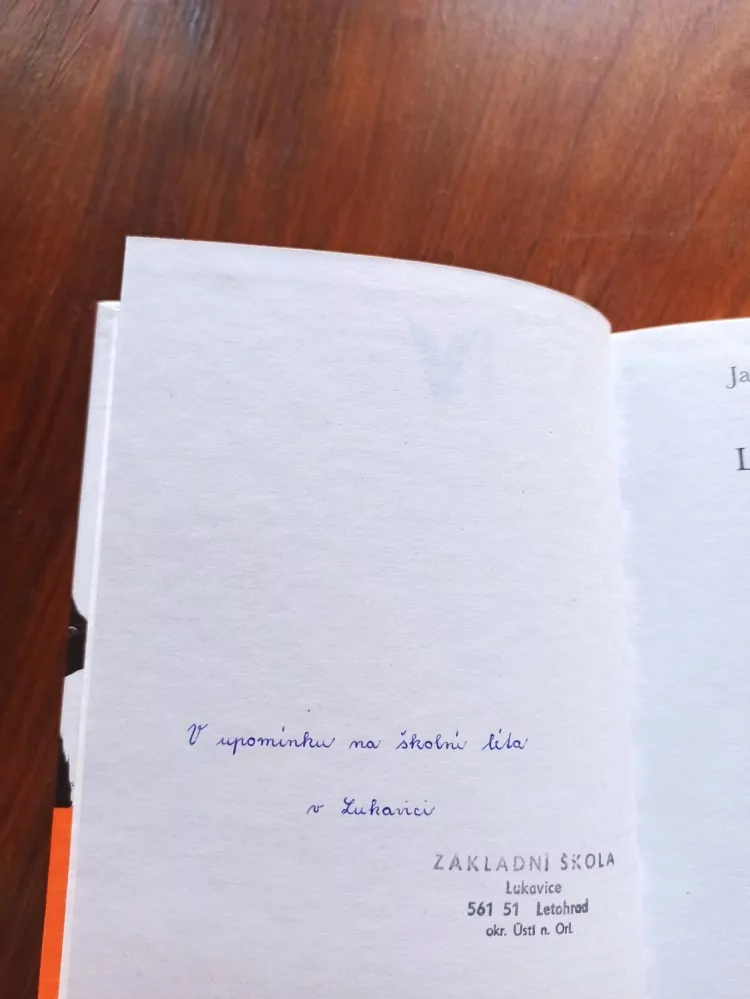 V upomínku na školní léta
v Lukavici
ZÁKLADNÍ ŠKOLA
Lukavice
561 51 Letohrad
okr. Ústí n. Orl.
Ja
L